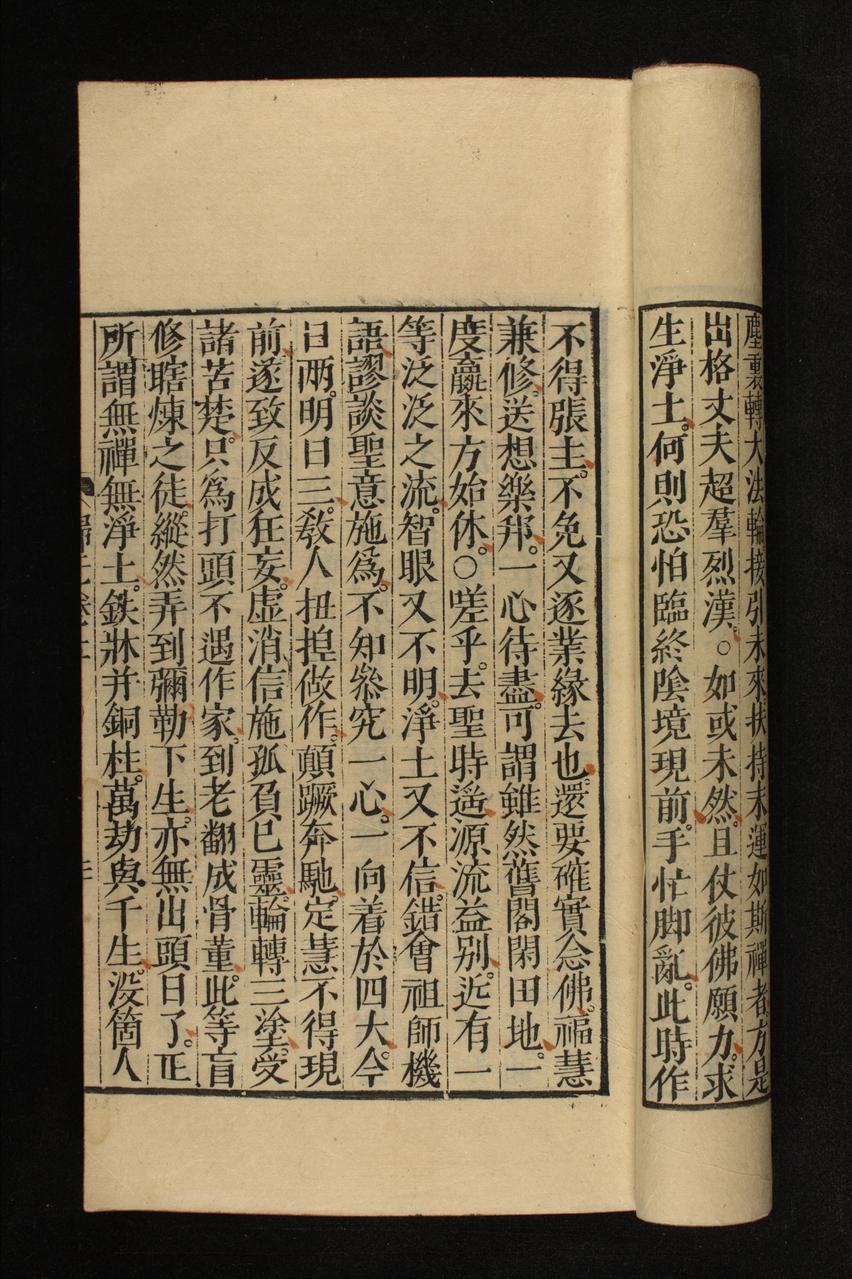 塵裏轉大法輪接引未來扶持末運如斯禪者方是
出格丈夫超羣烈漢。○如或未然。且仗彼佛願力。求
生淨土。何則恐怕臨終陰境現前。手忙脚亂。此時作
不得張主。不免又逐業緣去也。還要確實念佛。福慧
兼修。送想樂邦。一心待盡。可謂雖然舊閣閑田地。一
度贏來方始休。○嗟乎。去聖時遥。源流益别。近有一
等泛泛之流。智眼又不明。淨土又不信。錯會祖師機
語。謬談聖意施爲。不知叅究一心。一向着於四大。今
日兩。明日三。敎人扭揑做作。顛蹶奔馳。定慧不得現
前。遂致反成狂妄。虛消信施。孤負已靈。輪轉三塗。受
諸苦楚。只爲打頭不遇作家。到老翻成骨董。此等盲
修瞎煉之徒。縱然弄到彌勒下生。亦無出頭日了。正
所謂無禪無淨土。鉄牀并銅柱。萬劫與千生。沒箇人